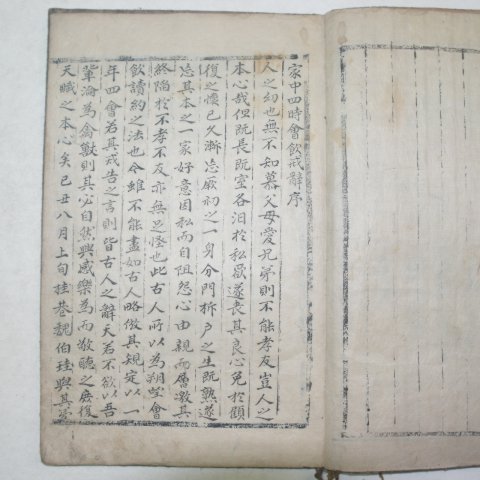 家中四時會飮戒辭序
人之幼也無不知慕父母愛兄弟則不能孝友豈人之
本心哉但旣長旣室各汩於私慾遂喪其良心免於顧
復之懷已久漸忘厥初之一身分門柝戶之生旣熟遂
忘其本之一家好意因私而自阻怨心由親而層激其
終陷於不孝不友亦無足怪也此古人所以為朔望會
飮讀約之法也今雖不能盡如古人略倣其規定以一
年四會若其戒告之言則皆古人之辭天若不欲以吾
輩淪為禽獸則其必自然興感樂為而敬聽之庶復
天賦之本心矣己丑八月上旬桂巷魏伯珪與其